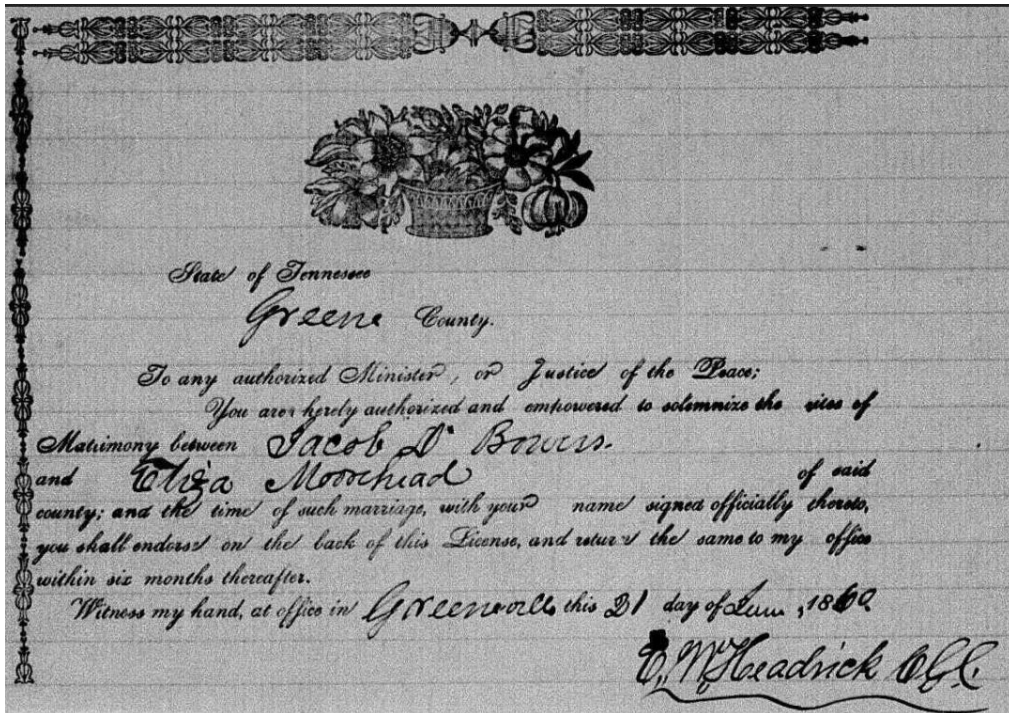 State of Tennessee
Greene County.
To any authorized Minister, or Justice of the Peace;
You are hereby authorized and empowered to solemnize the rites of
Matrimony between Jacob D Bowers.
and Eliza Moorehead of said
county; and the time of such marriage, with your name signed officially thereto,
you shall endorse on the back of this License, and return the same to my office
within six months thereafter.
Witness my hand, at office in Greeneville this 21 day of June, 1860
E. W Headrick